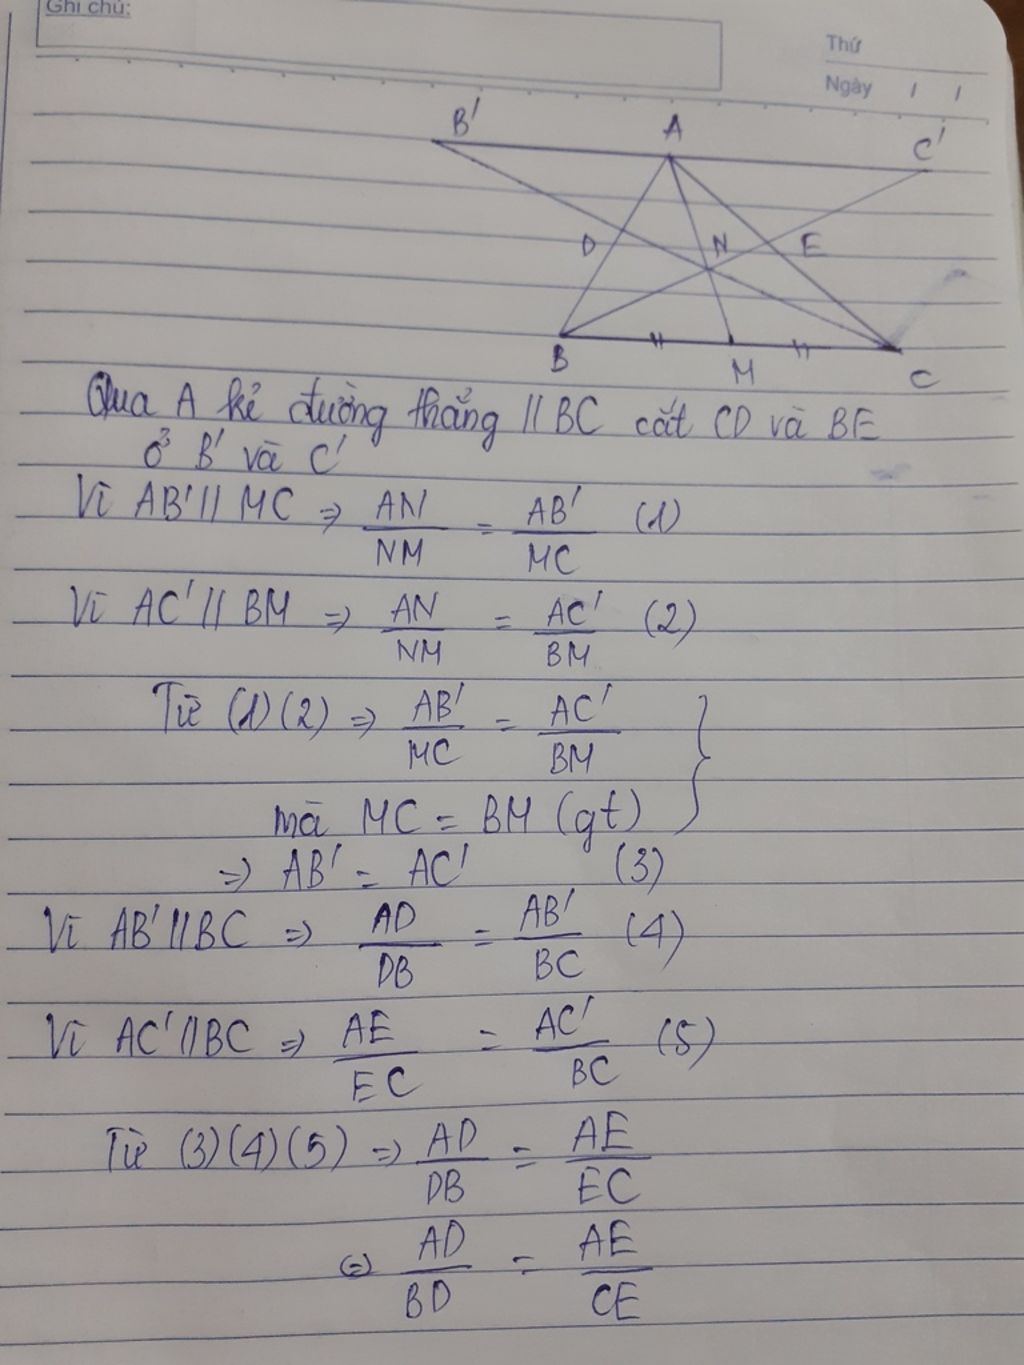 Ghi chú:
Thứ
Ngày / /
B' A C'
D N E
B M C
Qua A kẻ đường thẳng // BC cắt CD và BE
ở B' và C'
Vì AB' // MC => AN/NM = AB'/MC (1)
Vì AC' // BM => AN/NM = AC'/BM (2)
Từ (1)(2) => AB'/MC = AC'/BM }
mà MC = BM (gt)
=> AB' = AC' (3)
Vì AB' // BC => AD/DB = AB'/BC (4)
Vì AC' // BC => AE/EC = AC'/BC (5)
Từ (3)(4)(5) => AD/DB = AE/EC
(=) AD/BD = AE/CE